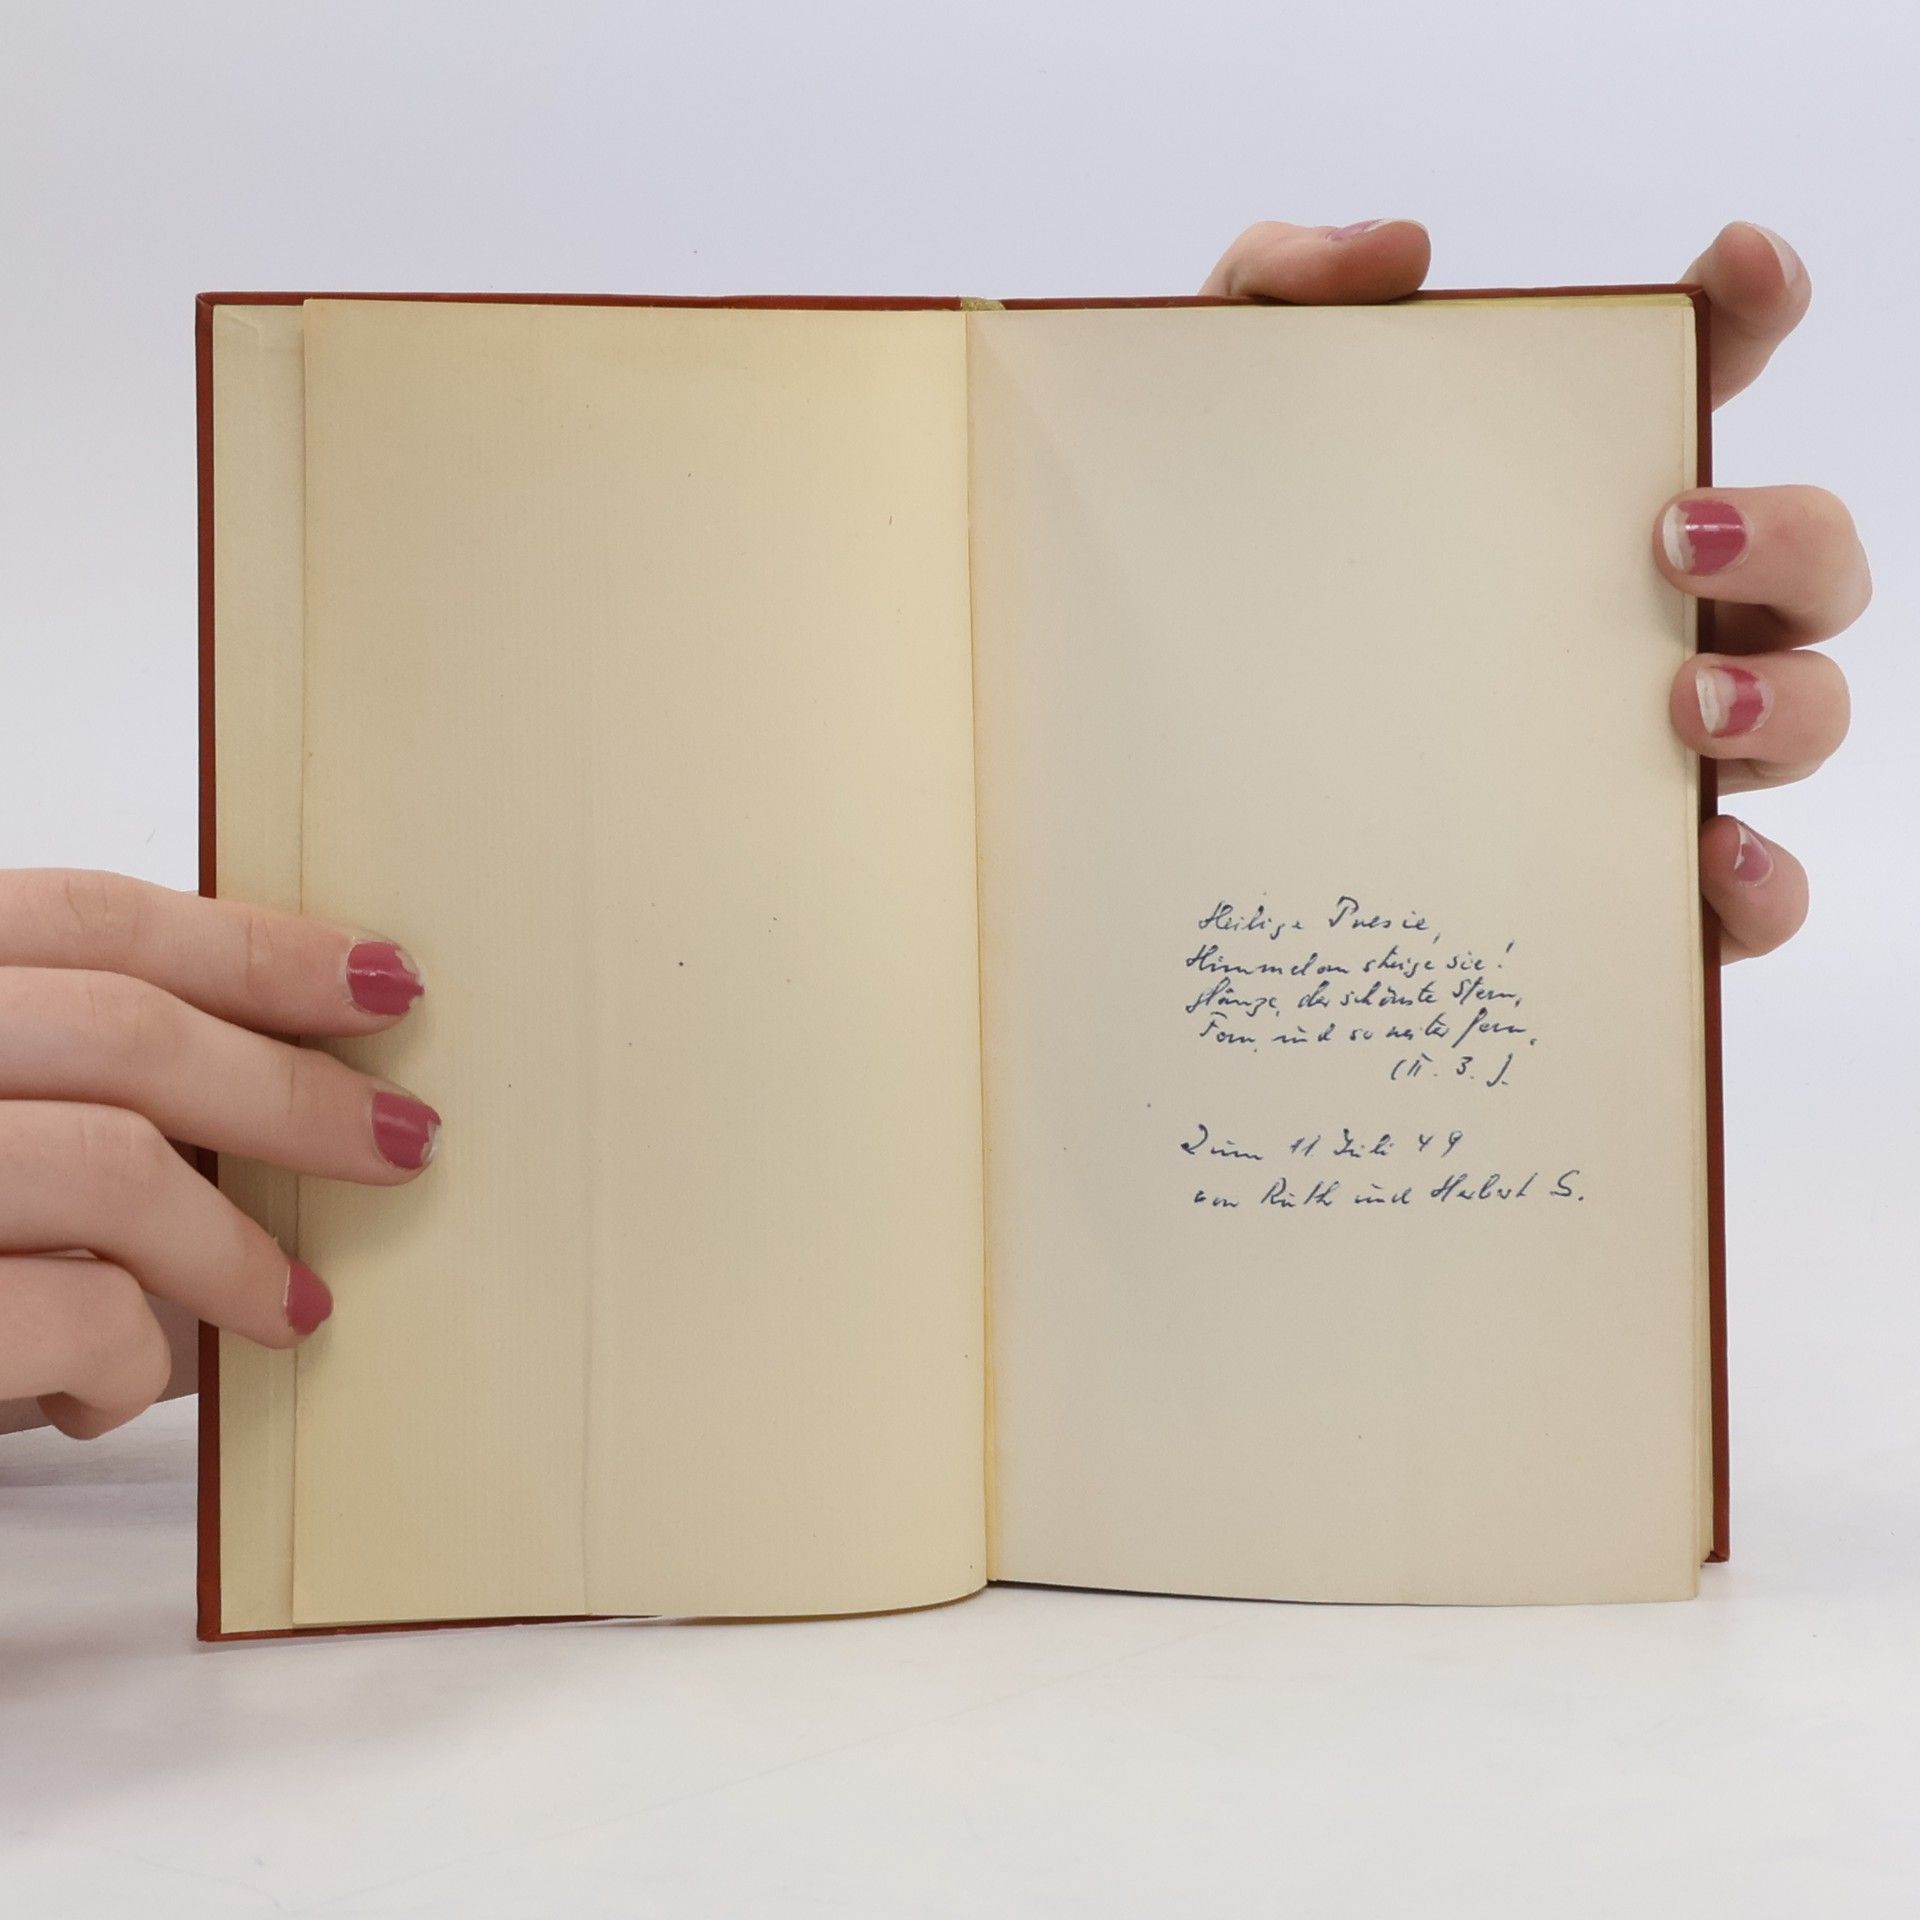 Heilige Poesie,
Himmelan steige sie!
Glänze, der schönste Stern,
Fern, und so weiter fern,
(II. 3.).
Zum 11. Juli 49
von Ruth und Herbert S.